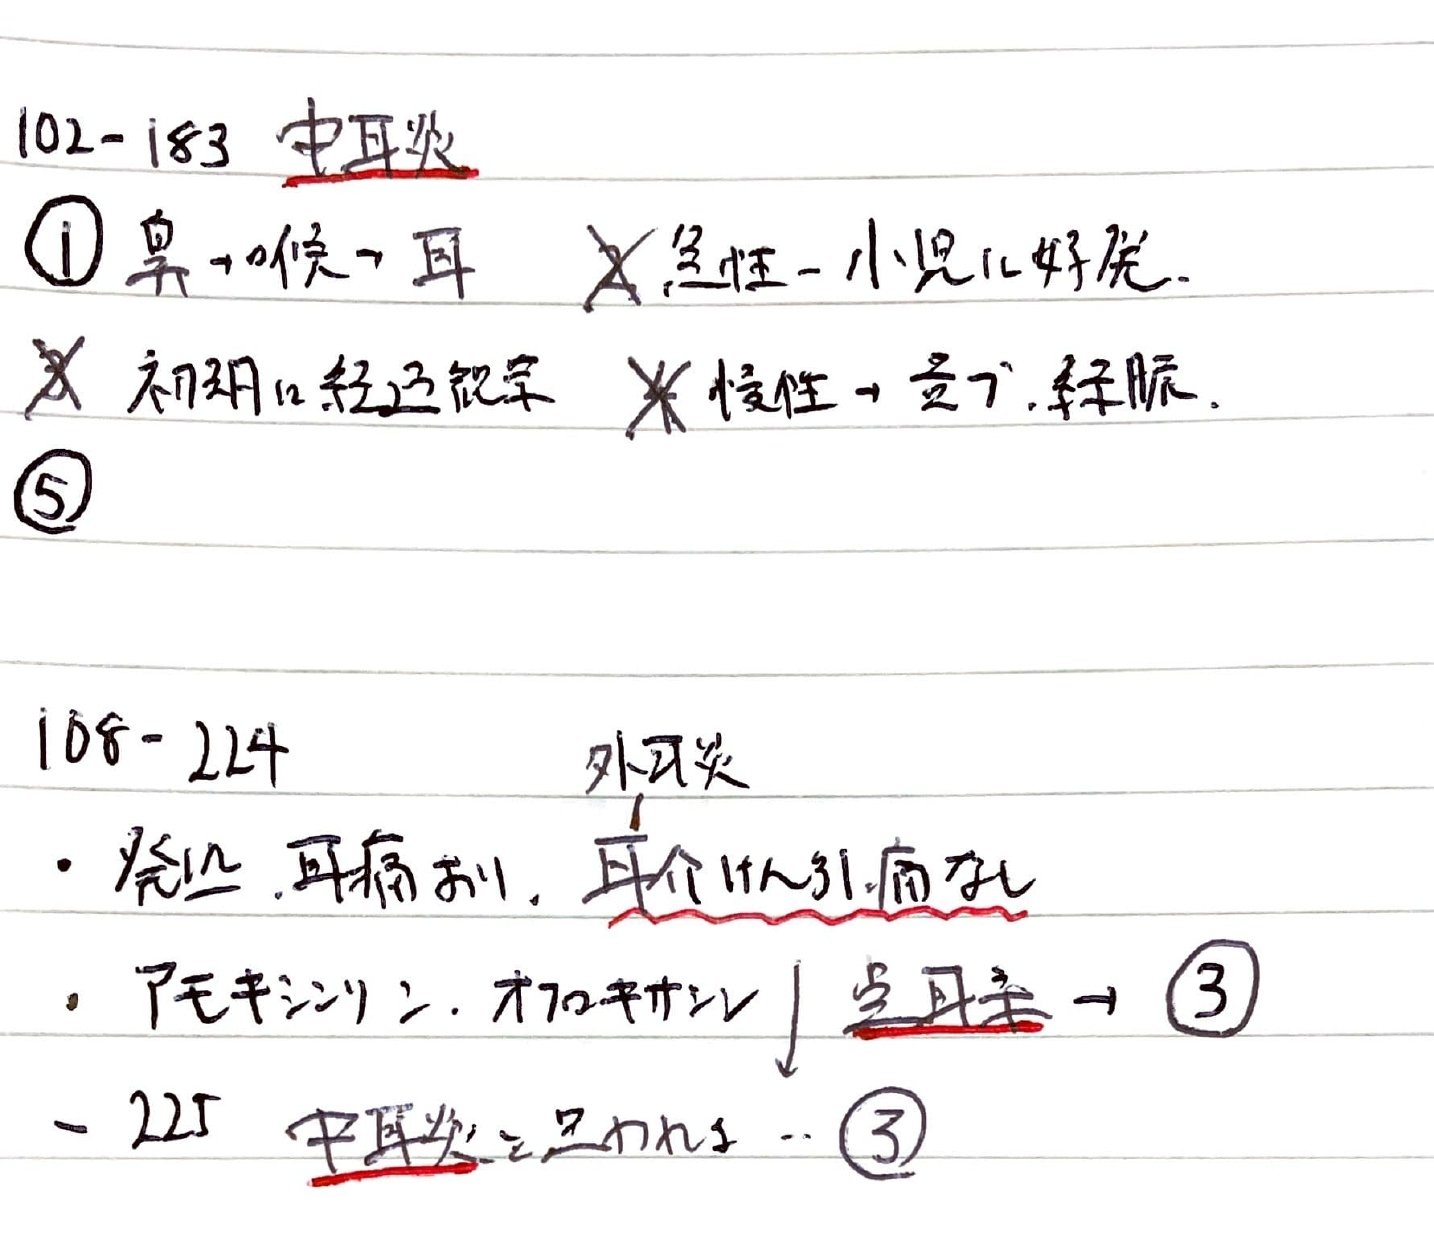 102-183 中耳炎
① 鼻→咽喉→耳 2 急性-小児に好発.
3 初期は経過観察 4 慢性→まず.緑膿.
⑤
108-224 外耳炎
・発熱.耳痛あり.耳介けん引.痛なし
・アモキシシリン.オフロキサシン ↓ 点耳薬→③
- 225 中耳炎と思われる‥③